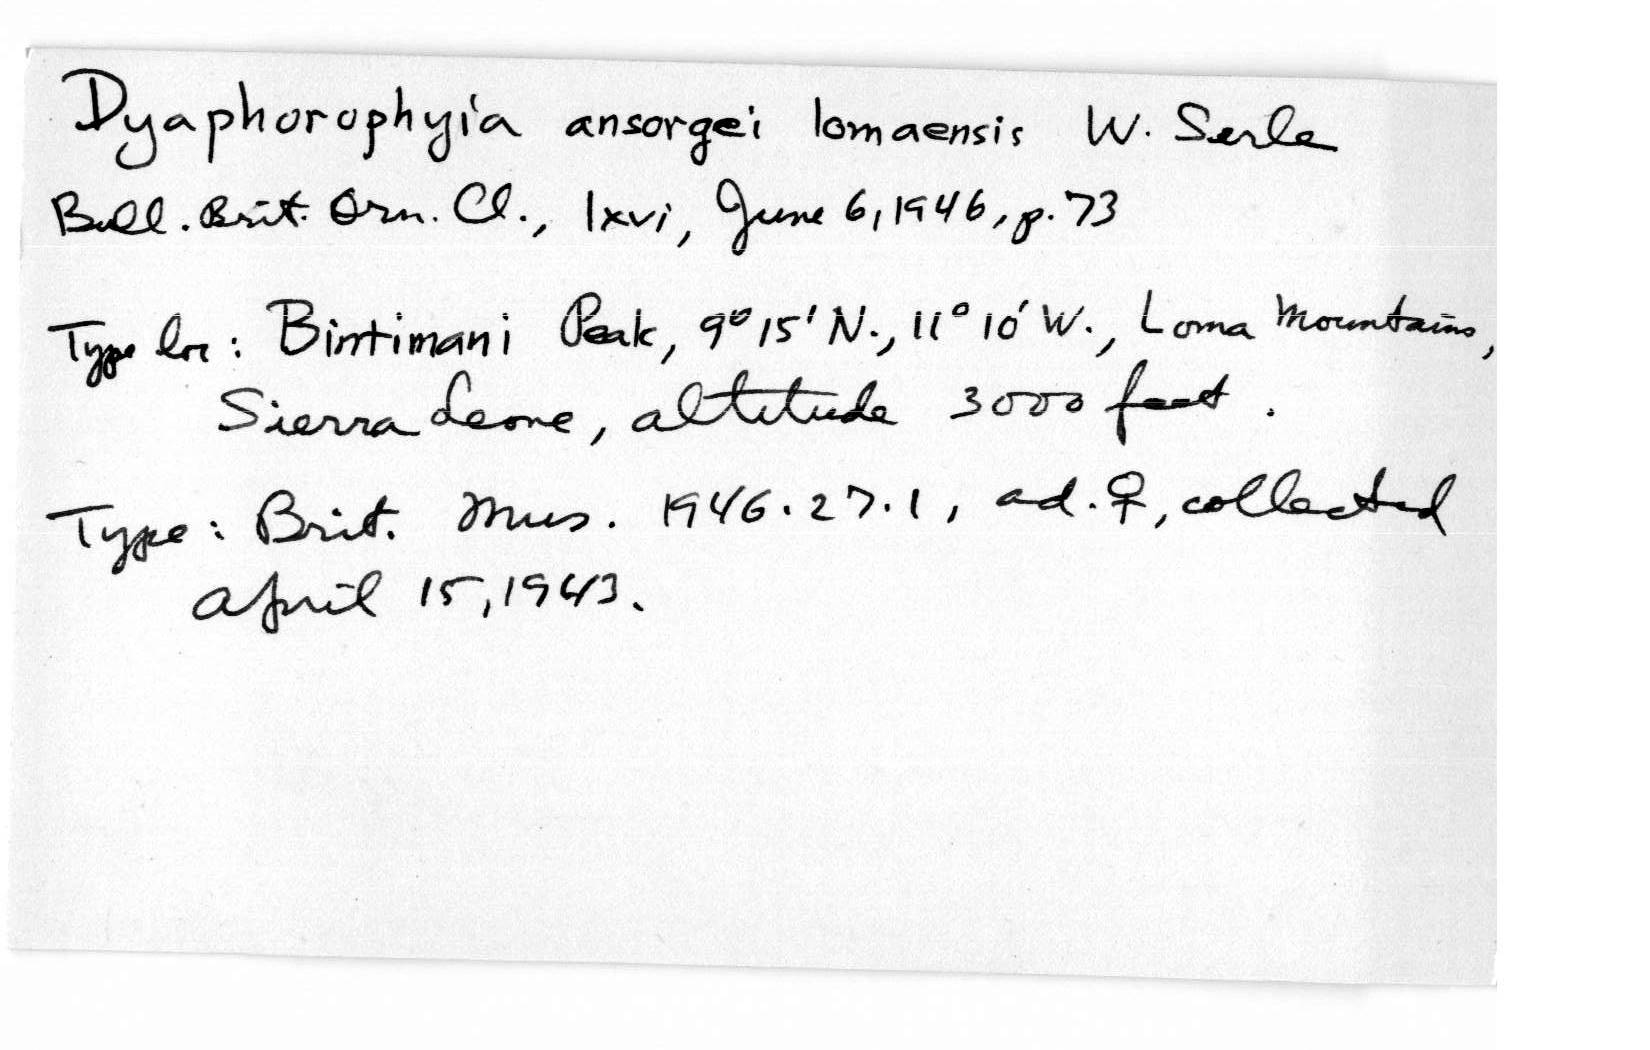 Dyaphorophyia ansorgei lomaensis W. Serle
Bull. Brit. Orn. Cl., lxvi, June 6, 1946, p. 73
Type loc: Bintimani Peak, 9° 15' N., 11° 10' W., Loma Mountains,
Sierra Leone, altitude 3000 feet.
Type: Brit. Mus. 1946.27.1, ad. ♀, collected
April 15, 1943.